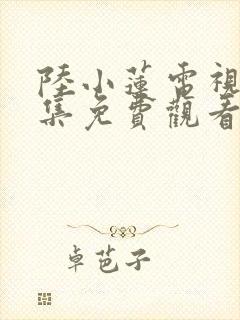 陸小蓮電視
集免費觀看
卓芭子